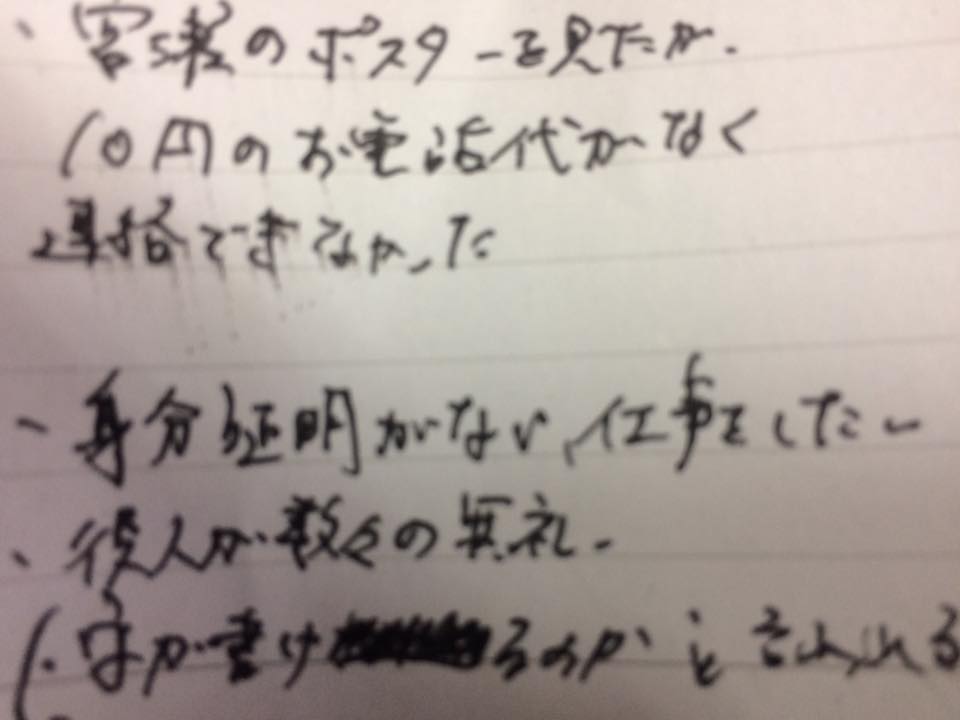 、客様のポスターを見たが、
10円のお電話代がなく
連絡できなかった
、身分証明がない、仕事をしたい
、役人が数々の無礼、
(・字が書けるのか と